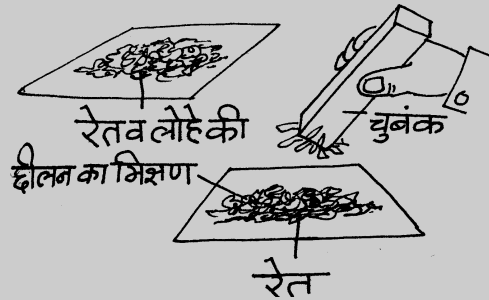 रेत व लोहे की
चुबंक
छीलन का मिश्रण
रेत